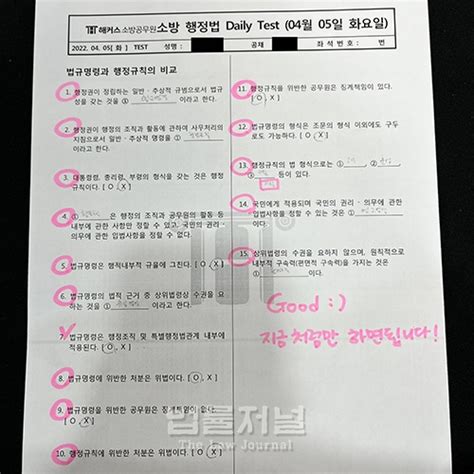 해커스소방공무원 소방 행정법 Daily Test (04월 05일 화요일)
2022. 04. 05[ 화 ] TEST 성명 : 공채 좌석번호 : 번
법규명령과 행정규칙의 비교
1. 행정권이 정립하는 일반·추상적 규범으로서 법규
성을 갖는 것을 ① 이라고 한다.
2. 행정권이 행정의 조직과 활동에 관하여 사무처리의
지침으로서 일반·추상적 명령을 ①
이라고 한다.
3. 대통령령, 총리령, 부령의 형식을 갖는 것은 행정
규칙이다. [ O, X ]
4. ① 은 행정의 조직과 공무원의 활동 등
내부에 관한 사항을 정할 수 있고, 국민의 권리·
의무에 관한 입법사항을 정할 수 없다.
5. 법규명령은 행정내부적 규율에 그친다. [ O, X ]
6. 법규명령의 법적 근거 중 상위법령상 수권을 요
하는 것은 ① 이라고 한다.
7. 법규명령은 행정조직 및 특별행정법관계 내부에
적용된다. [ O, X ]
8. 법규명령에 위반한 처분은 위법이다. [ O, X ]
9. 법규명령을 위반한 공무원은 징계책임이 없다.
[ O, X ]
10. 행정규칙에 위반한 처분은 위법이다. [ O, X ]
11. 행정규칙을 위반한 공무원은 징계책임이 있다.
[ O, X ]
12. 법규명령의 형식은 조문의 형식 이외에도 구두
로도 가능하다. [ O, X ]
13. 행정규칙의 법 형식으로는 ①
등이 있다.
14. 국민에게 적용되며 국민의 권리·의무에 관한
입법사항을 정할 수 있는 것은 ①
15. 상위법령의 수권을 요하지 않으며, 원칙적으로
내부적 구속력(편면적 구속력)을 가지는 것은
① 이다.
Good :)
지금처럼만 하면됩니다!
법률저널
The Law Journal